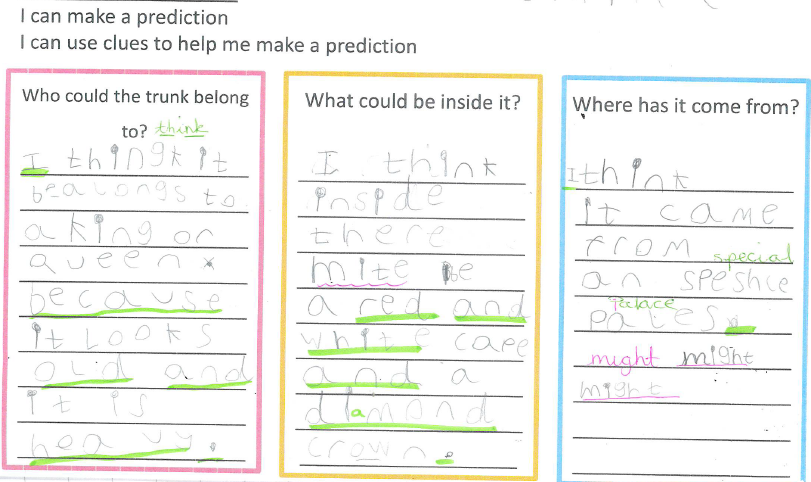 I can make a prediction
I can use clues to help me make a prediction
Who could the trunk belong
to? think
I thingk it
bealongs to
a king or
queen
because
it looks
old and
it is
heavy.
What could be inside it?
I think
inside
there
mite be
a red and
white cape
and a
diamond
crown.
Where has it come from?
I think
it came
from special
an speshle
palace
pales.
might might
might